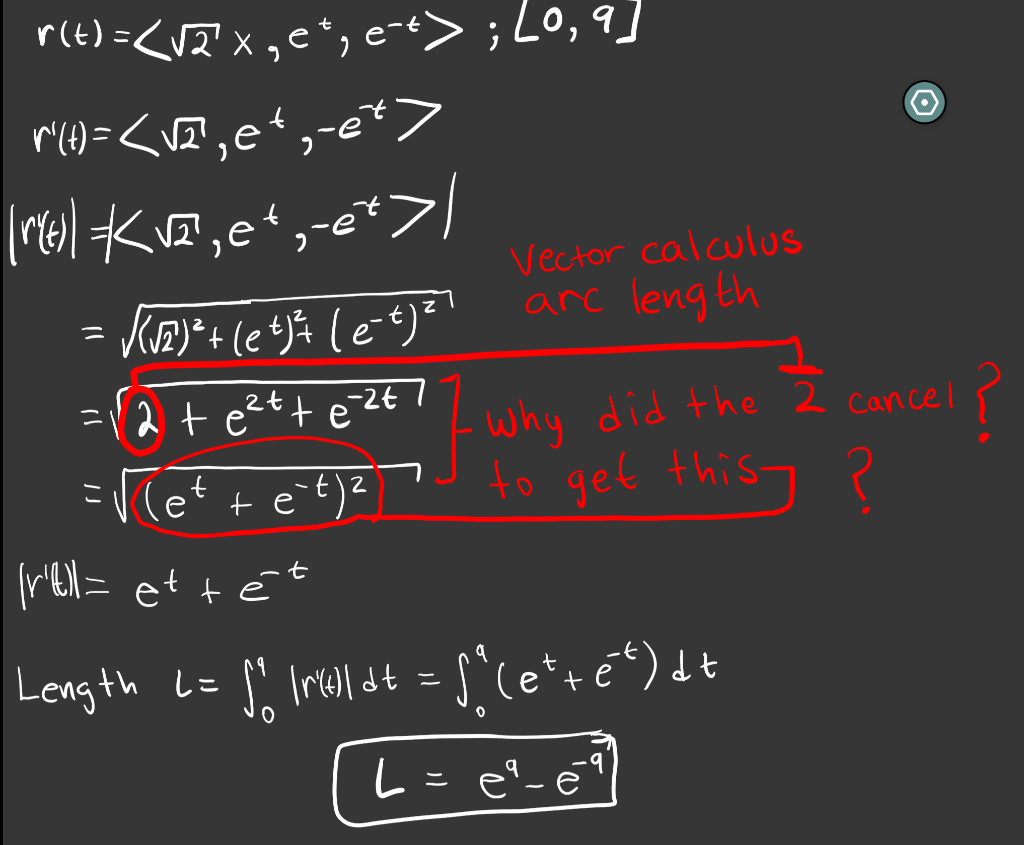 r(t) = <√2 x, e^t, e^-t> ; [0, 9]
r'(t) = <√2, e^t, -e^-t>
|r'(t)| = |<√2, e^t, -e^-t>|
vector calculus
arc length
= √((√2)² + (e^t)² + (e^-t)²)
= √(2 + e^2t + e^-2t)
why did the 2 cancel ?
to get this ?
= √((e^t + e^-t)²)
|r'(t)| = e^t + e^-t
Length L = ∫₀⁹ |r'(t)| dt = ∫₀⁹ (e^t + e^-t) dt
L = e^9 - e^-9